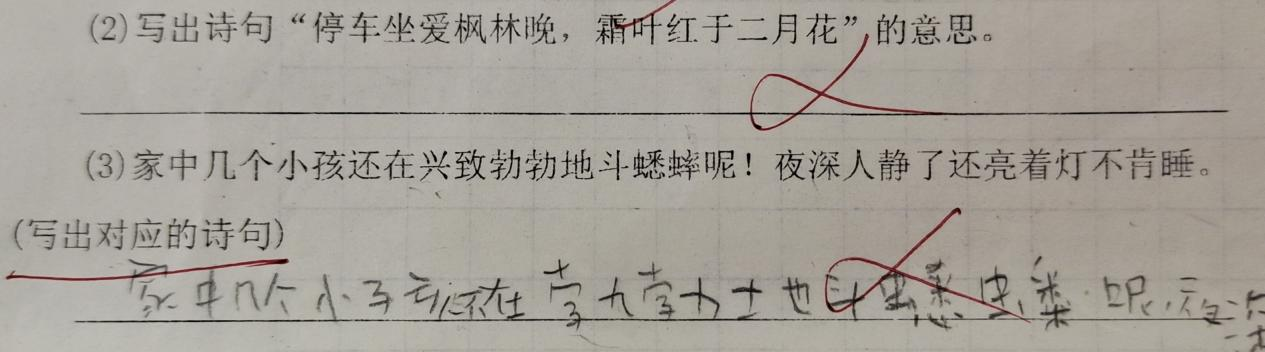 (2)写出诗句“停车坐爱枫林晚，霜叶红于二月花”的意思。
(3)家中几个小孩还在兴致勃勃地斗蟋蟀呢！夜深人静了还亮着灯不肯睡。
(写出对应的诗句)
家中几个小子 在 也斗 呢